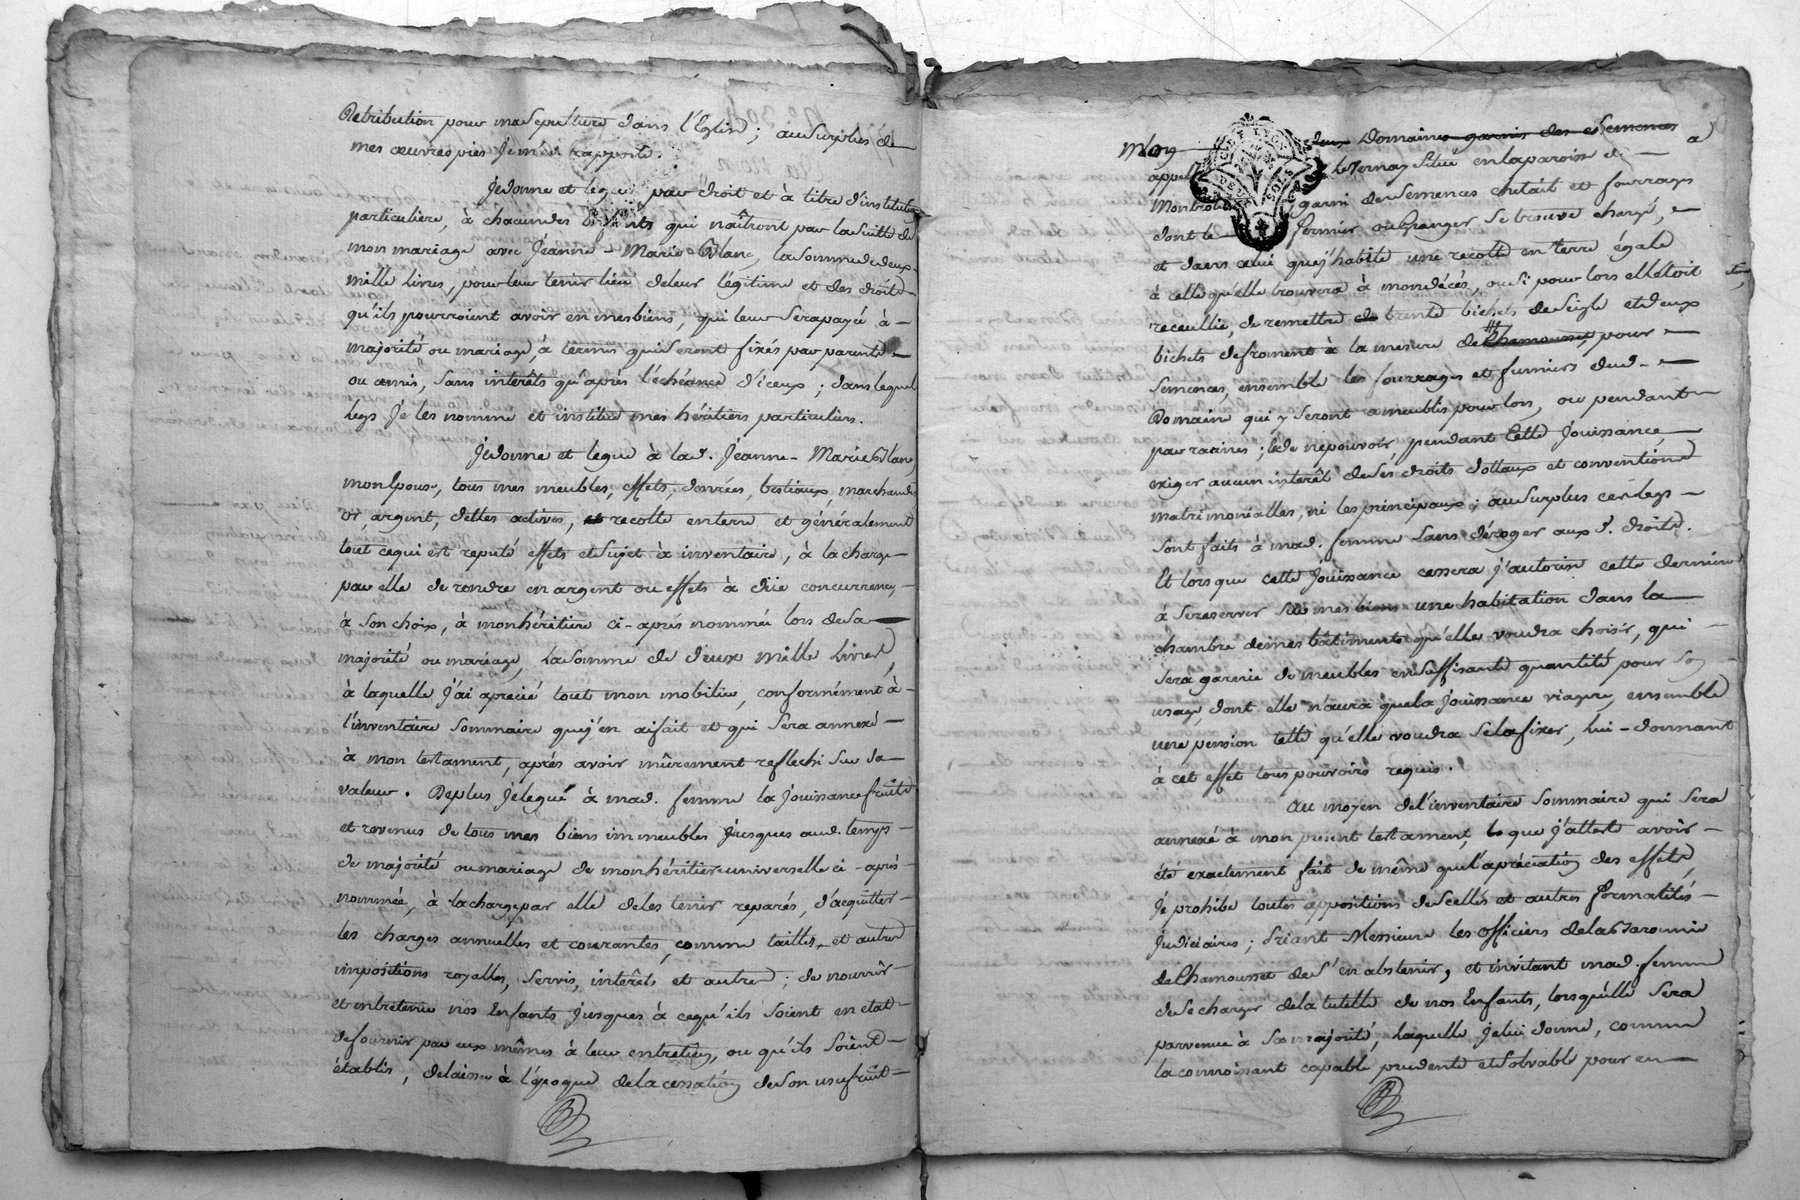 Retribution pour ma Sepulture dans l'Eglise; au Surplus de
mes œuvres pies Je m'en rapporte.
Je donne et legue par droit et à titre d'institution
particuliere, à chacun des Enfants qui naîtront par la suitte de
mon mariage avec Jeanne-Marie Blanc, la somme de deux
mille Livres, pour leur tenir lieu de leur légitime et des droits
qu'ils pourroient avoir en mes biens, qui leur Sera payée à
majorité ou mariage, à termes qui Seront fixés par parents
ou amis, Sans intérêts qu'après l'échéance d'iceux; dans lequel
legs Je les nomme et institue mes héritiers particuliers.
Je donne et legue à lad. Jeanne-Marie Blanc,
mon Epouse, tous mes meubles, effets, danrées, bestiaux, marchandises
or, argent, dettes actives, recolte en terre et généralement
tout ce qui est reputé effets et Sujet à inventaire, à la charge
par elle de rendre en argent ou effets à düe concurrence,
à Son choix, à mon héritiere ci-après nommée lors de Sa
majorité ou mariage, la Somme de deux mille Livres,
à laquelle j'ai aprecié tout mon mobilier, conformément à
l'inventaire Sommaire que j'en ai fait et qui Sera annexé
à mon testament, après avoir mûrement reflechi Sur Sa
valeur. De plus Je legue à mad. femme la Jouissance fruits
et revenus de tous mes biens immeubles Jusques aud. temps
de majorité ou mariage de mon héritiere universelle ci-après
nommée, à la charge par elle de les tenir reparés, d'acquitter
les charges annuelles et courantes, comme tailles et autres
impositions royalles, Servis, intérêts et autres; de nourrir
et entretenir nos Enfants Jusques à ce qu'ils Soient en etat
de fournir par eux mêmes à leur entretien, ou qu'ils Soient
établis, delaisser à l'époque de la cessation de Son usufruit
mon deux Domaines garnis des Semences a
appellé le Vernay Situé en la paroisse de
Montrotier garni de Semences entait et fourrages
dont le fermier ou Granger Se trouve chargé,
et dans celui que j'habite une recolte en terre égale
à celle qu'elle trouvera à mon décès, ou Si pour lors elle étoit
receuillie, de remettre trente bichets de Seigle et deux
bichets de froment à la mesure de Chamousset pour
Semences, ensemble les fourrages et fumiers dud.
Domaine qui y Seront ameublis pour lors, ou pendant
par racines; de ne pouvoir, pendant Cette Jouissance
exiger aucun intérêt de Ses droits dottaux et conventions
matrimonialles, ni les principaux; au Surplus ces legs
Sont faits à mad. femme Sans déroger aux d. droits.
Et lorsque cette Jouissance cessera j'autorise cette derniere
à Se reserver Sur mes biens une habitation dans la
chambre de mes bâtiments qu'elle voudra choisir, qui
Sera garnie de meubles en Suffisante quantité pour Son
usage, dont elle n'aura que la Jouissance viagere, ensemble
une pension telle qu'elle voudra Se la fixer, lui donnant
à cet effet tous pouvoirs requis.
Au moyen de l'inventaire Sommaire qui Sera
annexé à mon présent testament, que j'atteste avoir
été exactement fait de même que l'apréciation des effets,
Je prohibe toutes appositions de Scellés et autres formalités
Judiciaires; Priant Messieurs les officiers de la Baronnie
de Chamousset de S'en abstenir, et invitant mad. femme
de Se charger de la tutelle de nos Enfants, lorsqu'elle Sera
parvenue à Sa majorité laquelle Je lui donne, comme
la connoissant capable prudente et Solvable pour en